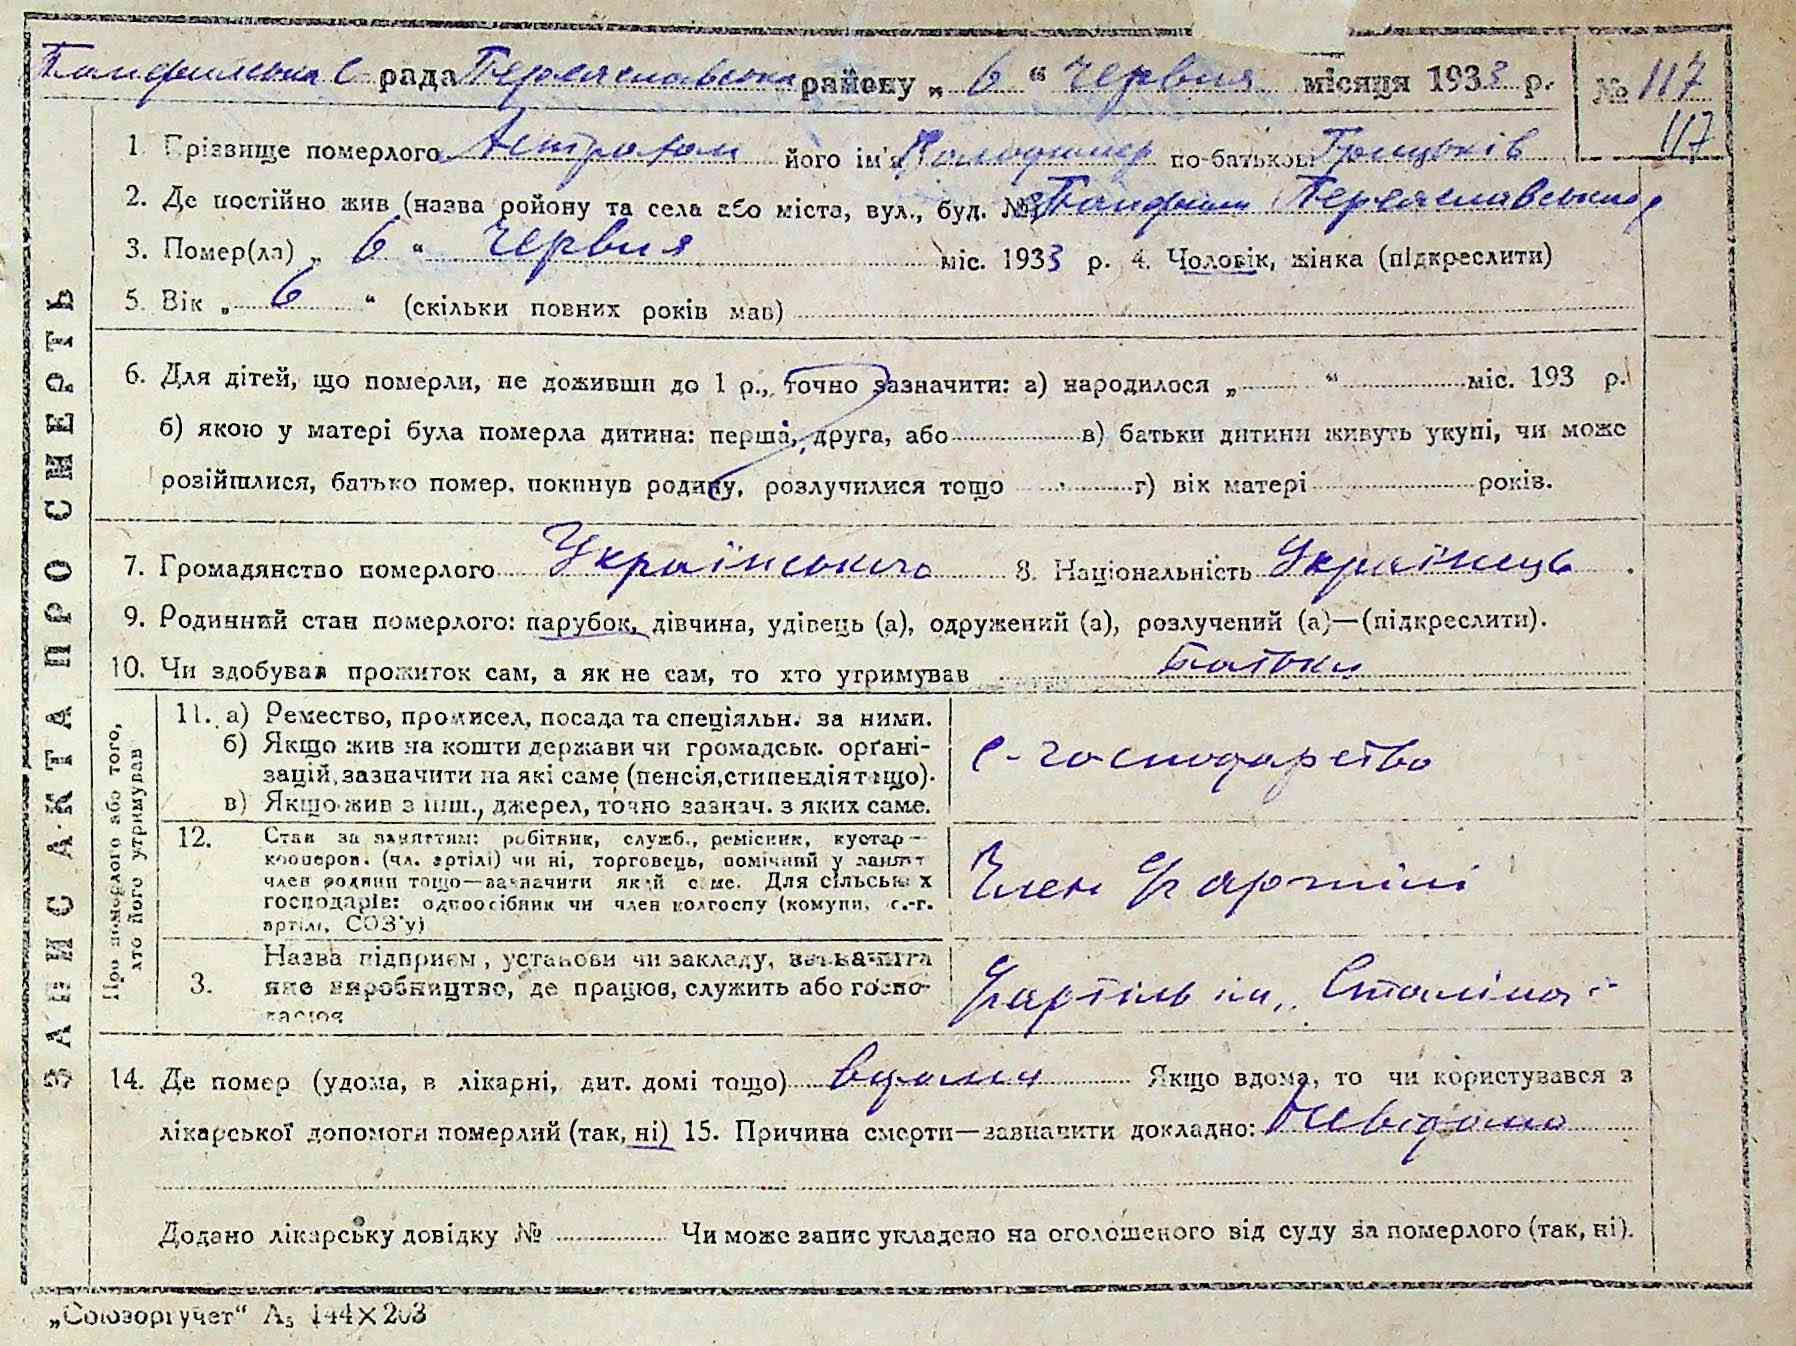 Памфильська с. рада Переяславська району „ 6 “ Червня місяця 1933 р. № 117
117
1. Прізвище померлого Астрахан його ім'я Володимир по-батькові Грицьків
2. Де постійно жив (назва району та села або міста, вул., буд. № Памфили Переяславського
3. Помер(ла) „ 6 “ Червня міс. 1933 р. 4. Чоловік, жінка (підкреслити)
5. Вік „ 6 “ (скільки повних років мав)
6. Для дітей, що померли, не доживши до 1 р., точно зазначити: а) народилося „ “ міс. 193 р.
б) якою у матері була померла дитина: перша, друга, або в) батьки дитини живуть укупі, чи може
розійшлися, батько помер, покинув родину, розлучилися тощо г) вік матері років.
7. Громадянство померлого Українського 8. Національність Українець
9. Родинний стан померлого: парубок, дівчина, удівець (а), одружений (а), розлучений (а)—(підкреслити).
10. Чи здобував прожиток сам, а як не сам, то хто утримував Батьки
ЗАПИС АКТА ПРО СМЕРТЬ
Про померлого або того,
хто його утримував
11. а) Ремество, промисел, посада та спеціяльн. за ними.
б) Якщо жив на кошти держави чи громадськ. орґані-
зацій, зазначити на які саме (пенсія, стипендія тощо).
в) Якщо жив з інш., джерел, точно зазнач. з яких саме.
с-господарство
12. Стан за заняттям: робітник, служб., ремісник, кустар—
кооперов. (чл. артілі) чи ні, торговець, помічний у занят
член родини тощо—зазначити який саме. Для сільських
господарів: одноосібник чи член колгоспу (комуни, с.-г.
артілі, СОЗ'у)
Член с/г артілі
3. Назва підприєм, установи чи закладу, зазначити
яке виробництво, де працює, служить або госпо-
дарює
с/г артіль ім. Сталіна
14. Де помер (удома, в лікарні, дит. домі тощо) вдома Якщо вдома, то чи користувався з
лікарської допомоги померлий (так, ні) 15. Причина смерти—зазначити докладно: Невідомо
Додано лікарську довідку № Чи може запис укладено на оголошеного від суду за померлого (так, ні).
„Союзоргучет“ А5 144×203